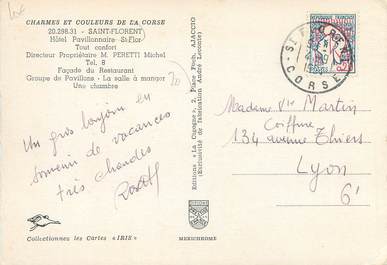 CHARMES ET COULEURS DE LA CORSE
20.298.31 - SAINT-FLORENT
Hôtel Pavillonnaire St-Flor
Tout confort
Directeur Propriétaire M. PERETTI Michel
Tel. 8
Façade du Restaurant
Groupe de Pavillons - La salle à manger
Une chambre
Un gros bonjour en
souvenir de vacances
très chaudes
Editions « La Cigogne », 2, Place Foch, AJACCIO
(Exclusivité de fabrication André Leconte)
ST FLORENT
CORSE
Madame Vve Martin
Coiffure
134 avenue Thiers
Lyon
6e
Collectionnez les Cartes « IRIS »
MEXICHROME